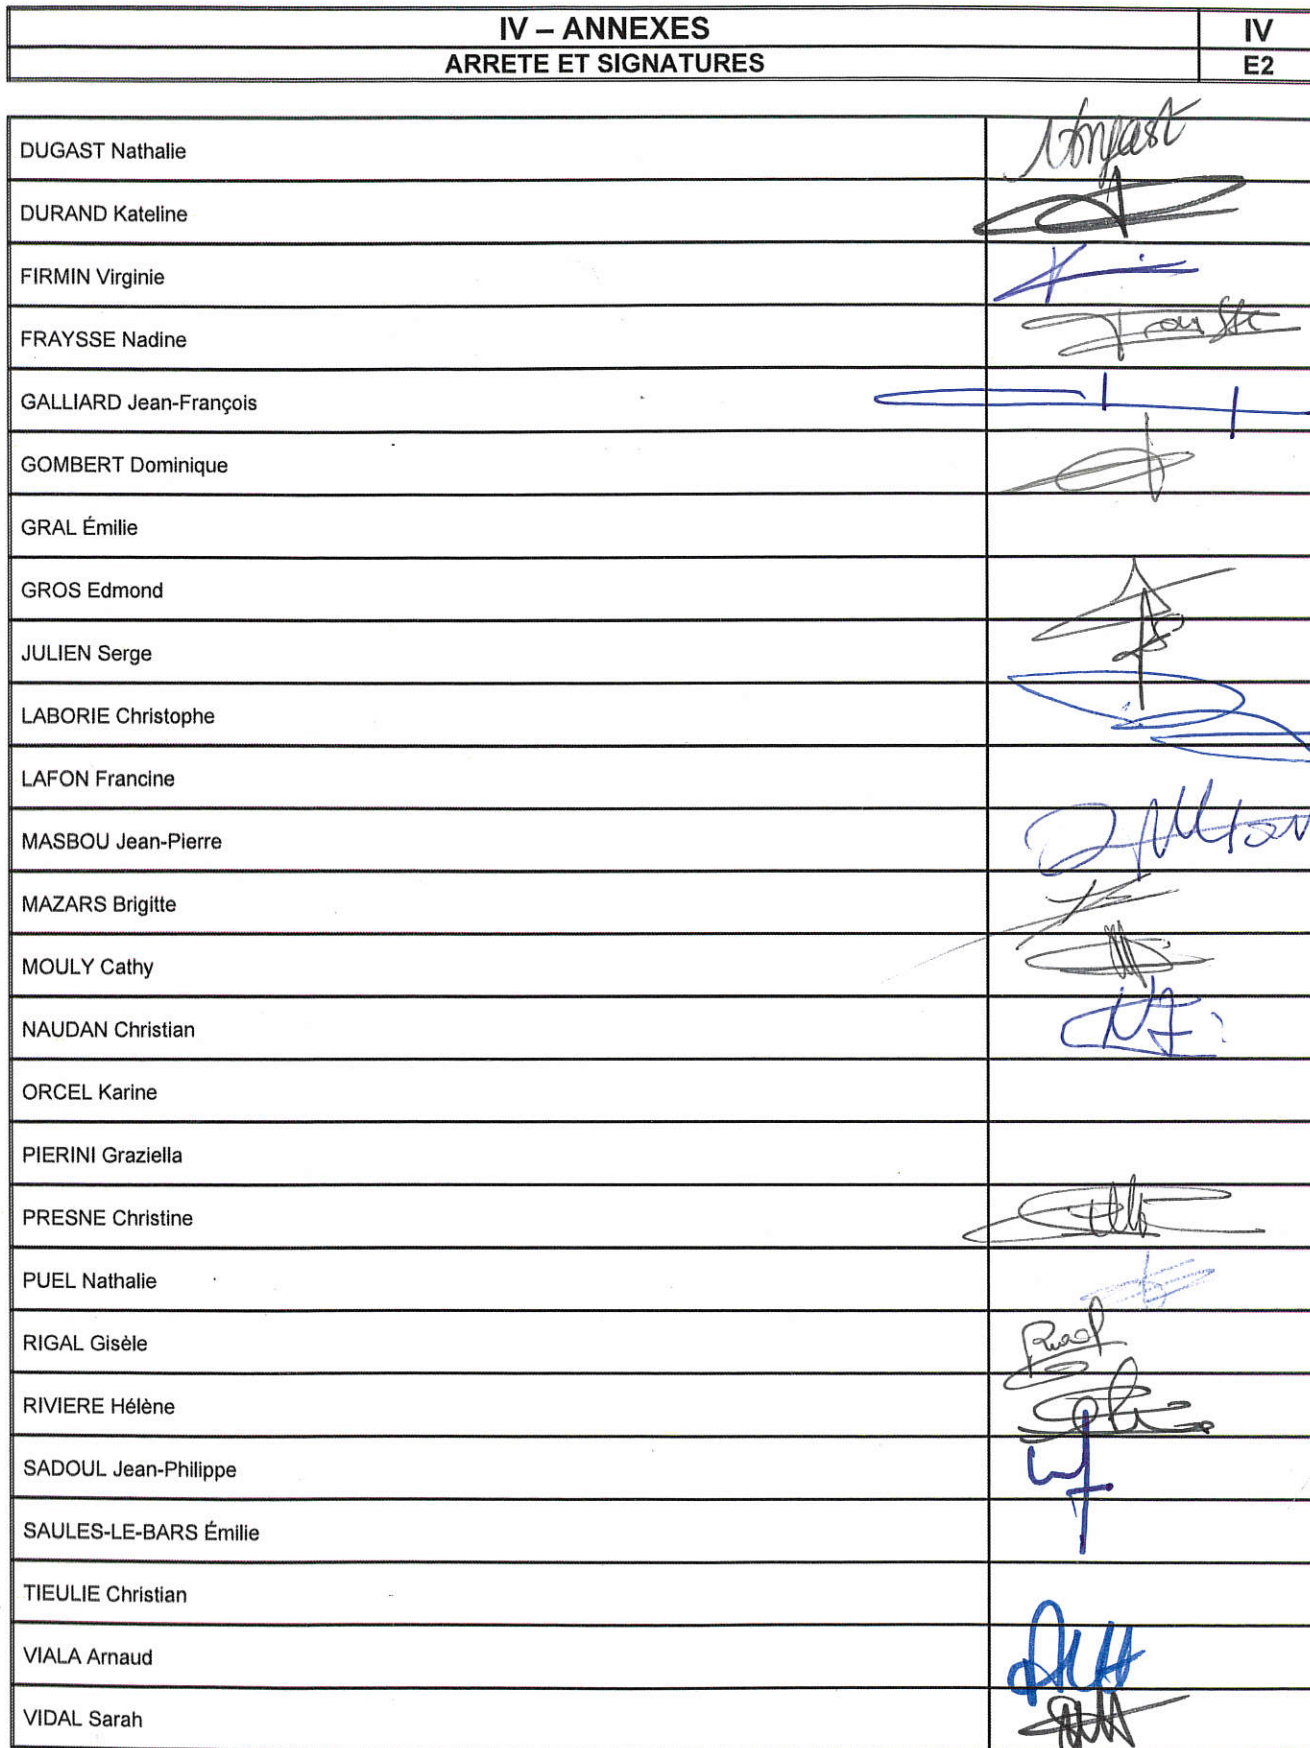 IV – ANNEXES IV
ARRETE ET SIGNATURES E2
DUGAST Nathalie
DURAND Kateline
FIRMIN Virginie
FRAYSSE Nadine
GALLIARD Jean-François
GOMBERT Dominique
GRAL Émilie
GROS Edmond
JULIEN Serge
LABORIE Christophe
LAFON Francine
MASBOU Jean-Pierre
MAZARS Brigitte
MOULY Cathy
NAUDAN Christian
ORCEL Karine
PIERINI Graziella
PRESNE Christine
PUEL Nathalie
RIGAL Gisèle
RIVIERE Hélène
SADOUL Jean-Philippe
SAULES-LE-BARS Émilie
TIEULIE Christian
VIALA Arnaud
VIDAL Sarah